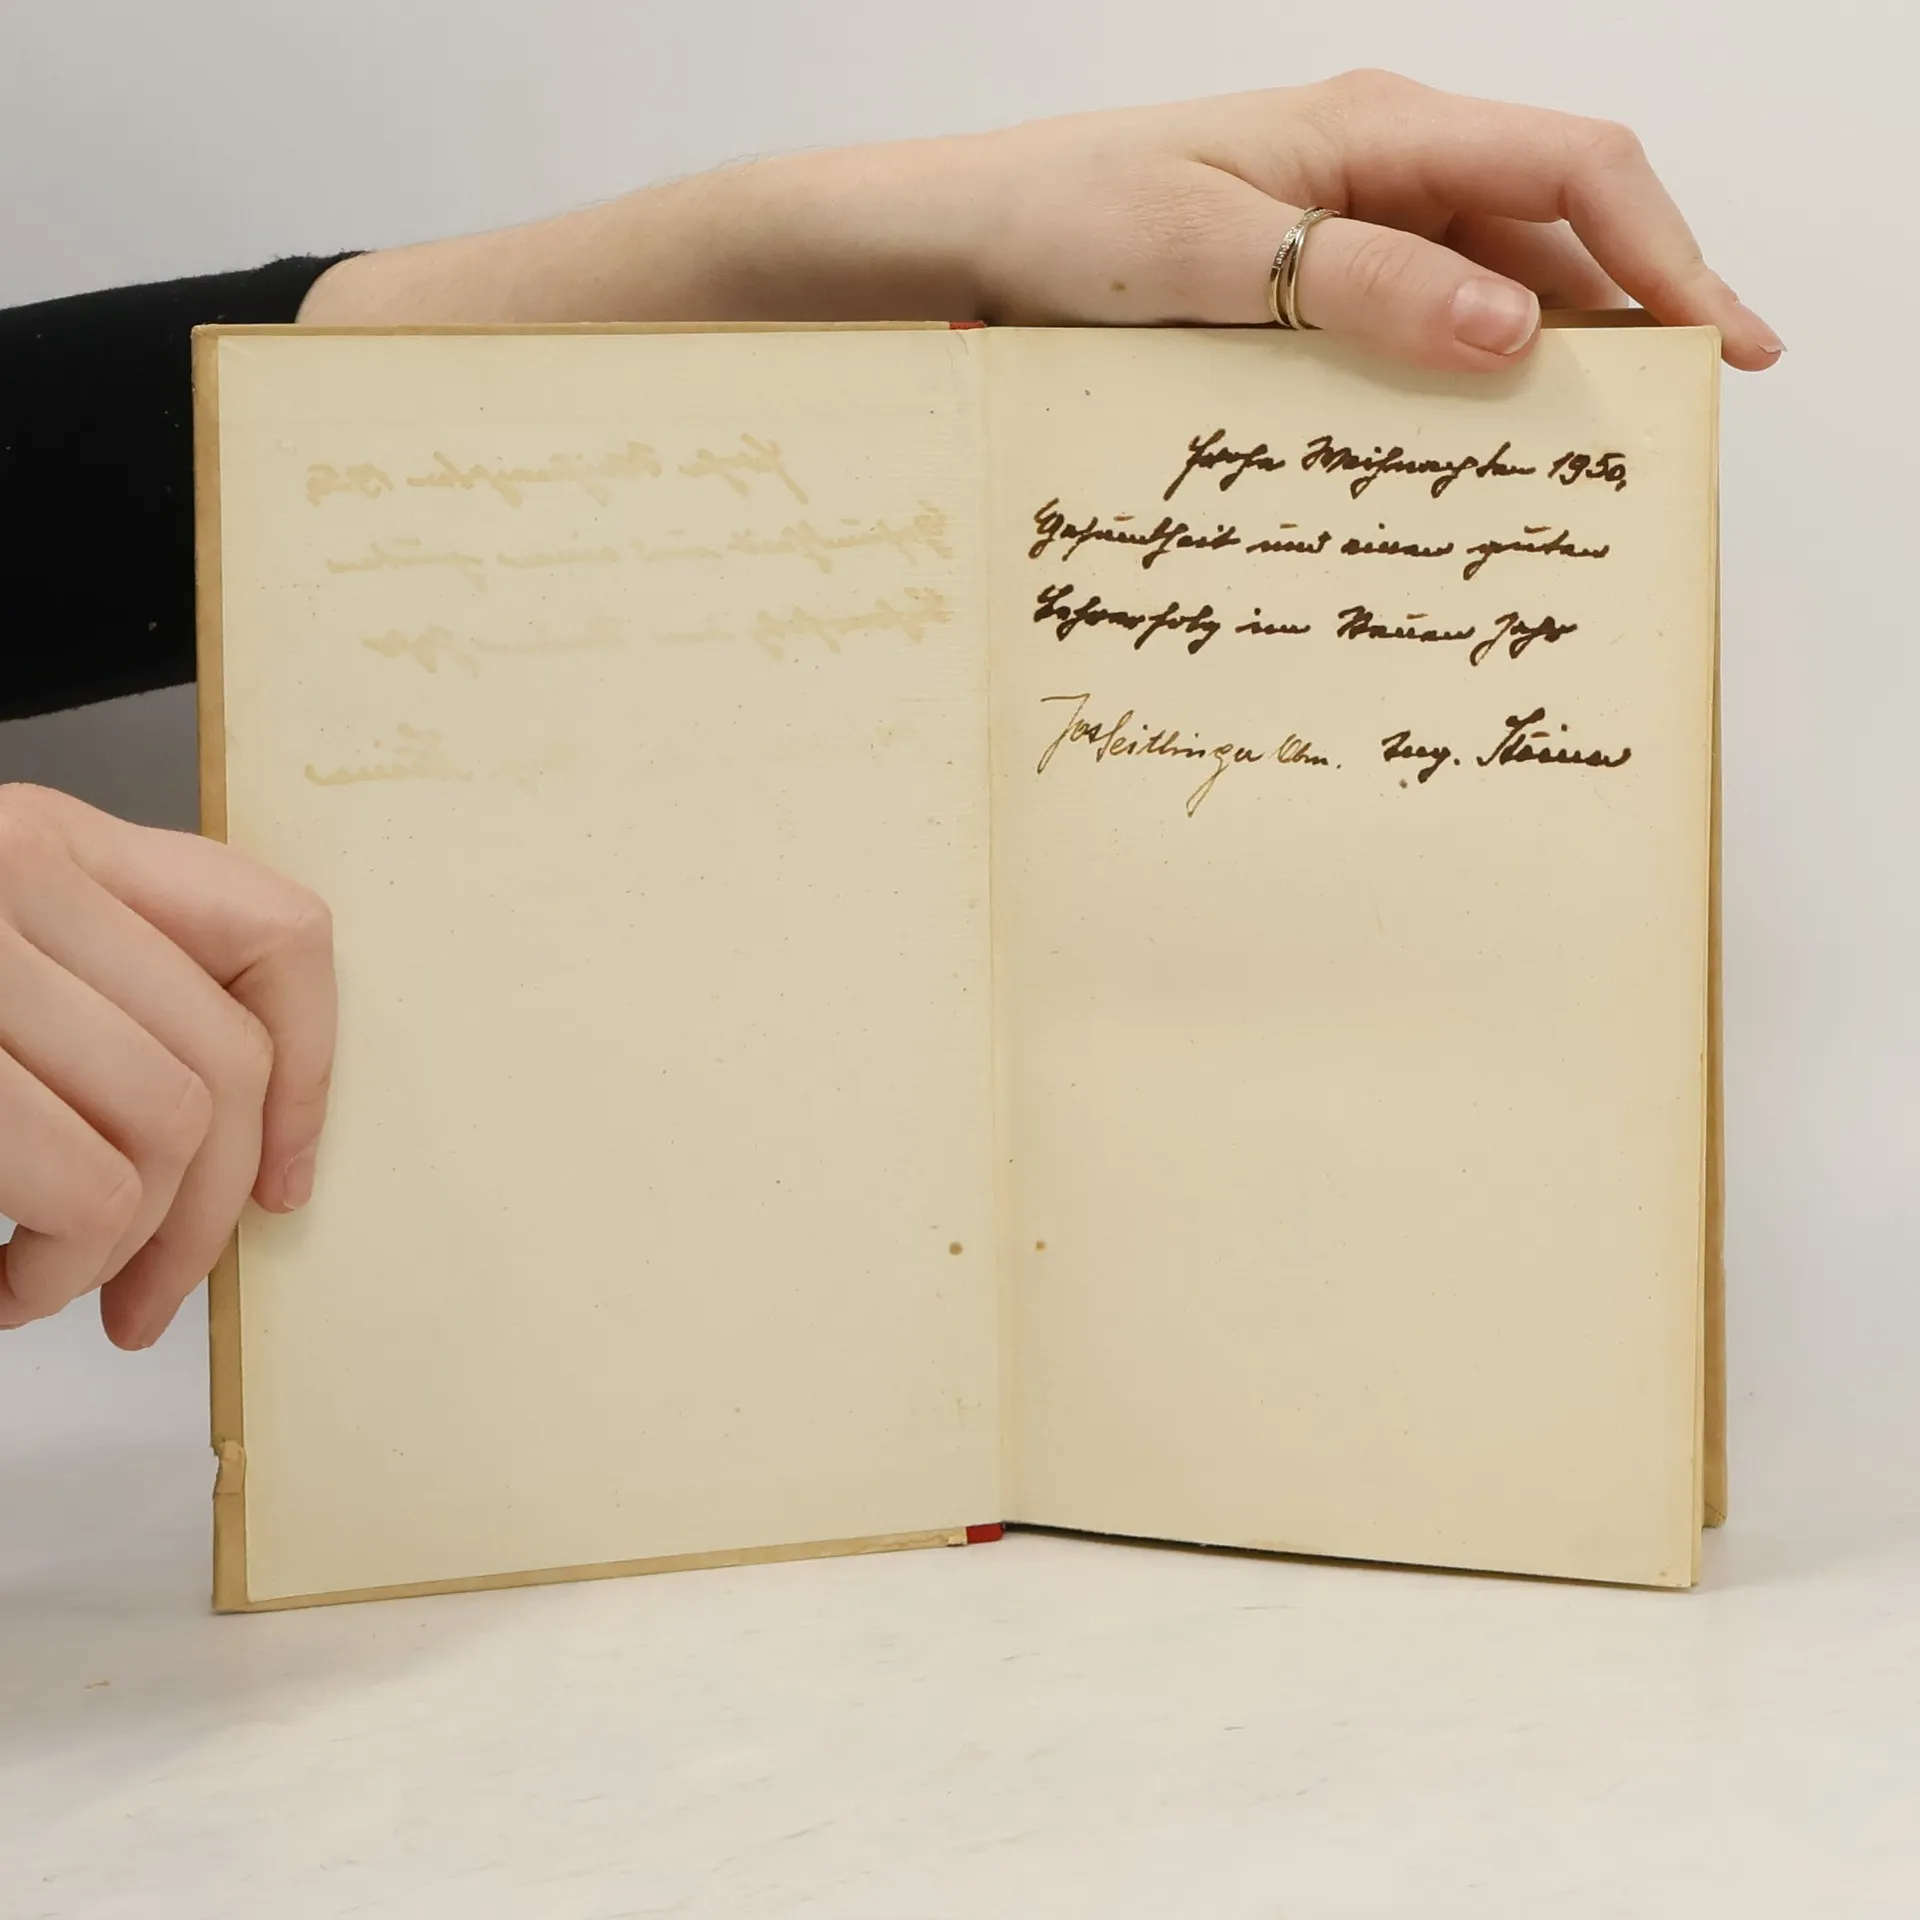 Frohe Weihnachten 1950,
Gesundheit und einen guten
Lehrerfolg im Neuen Jahr
Jos Seitlinger Obm. Aug. Steiner